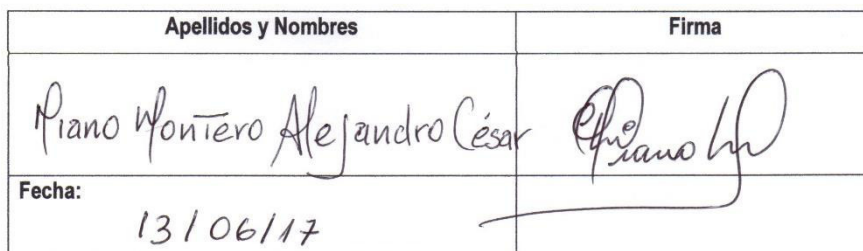 Apellidos y Nombres
Firma
Miano Montero Alejandro César
Miano
Fecha:
13/06/17